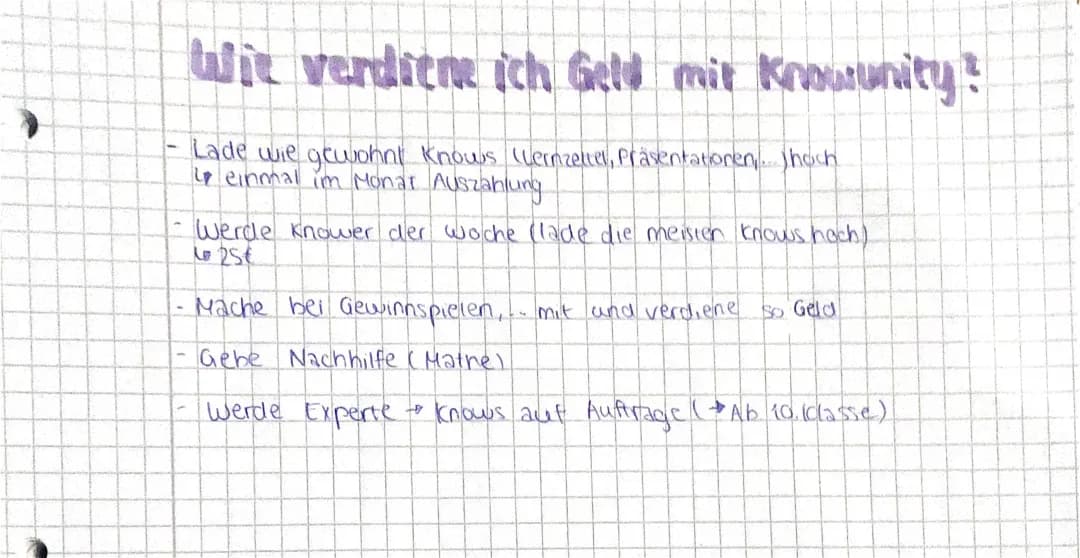 Wie verdiene ich Geld mit Knowunity?
- Lade wie gewohnt Knows (Lernzettel, Präsentationen,.. )hoch
↳ einmal im Monat Auszahlung
- Werde Knower der Woche (lade die meisten Knows hoch)
↳ 25€
- Mache bei Gewinnspielen,.. mit und verdiene so Geld
- Gebe Nachhilfe (Mathe)
- Werde Experte → Knows auf Aufträge (→ Ab 10.Klasse)